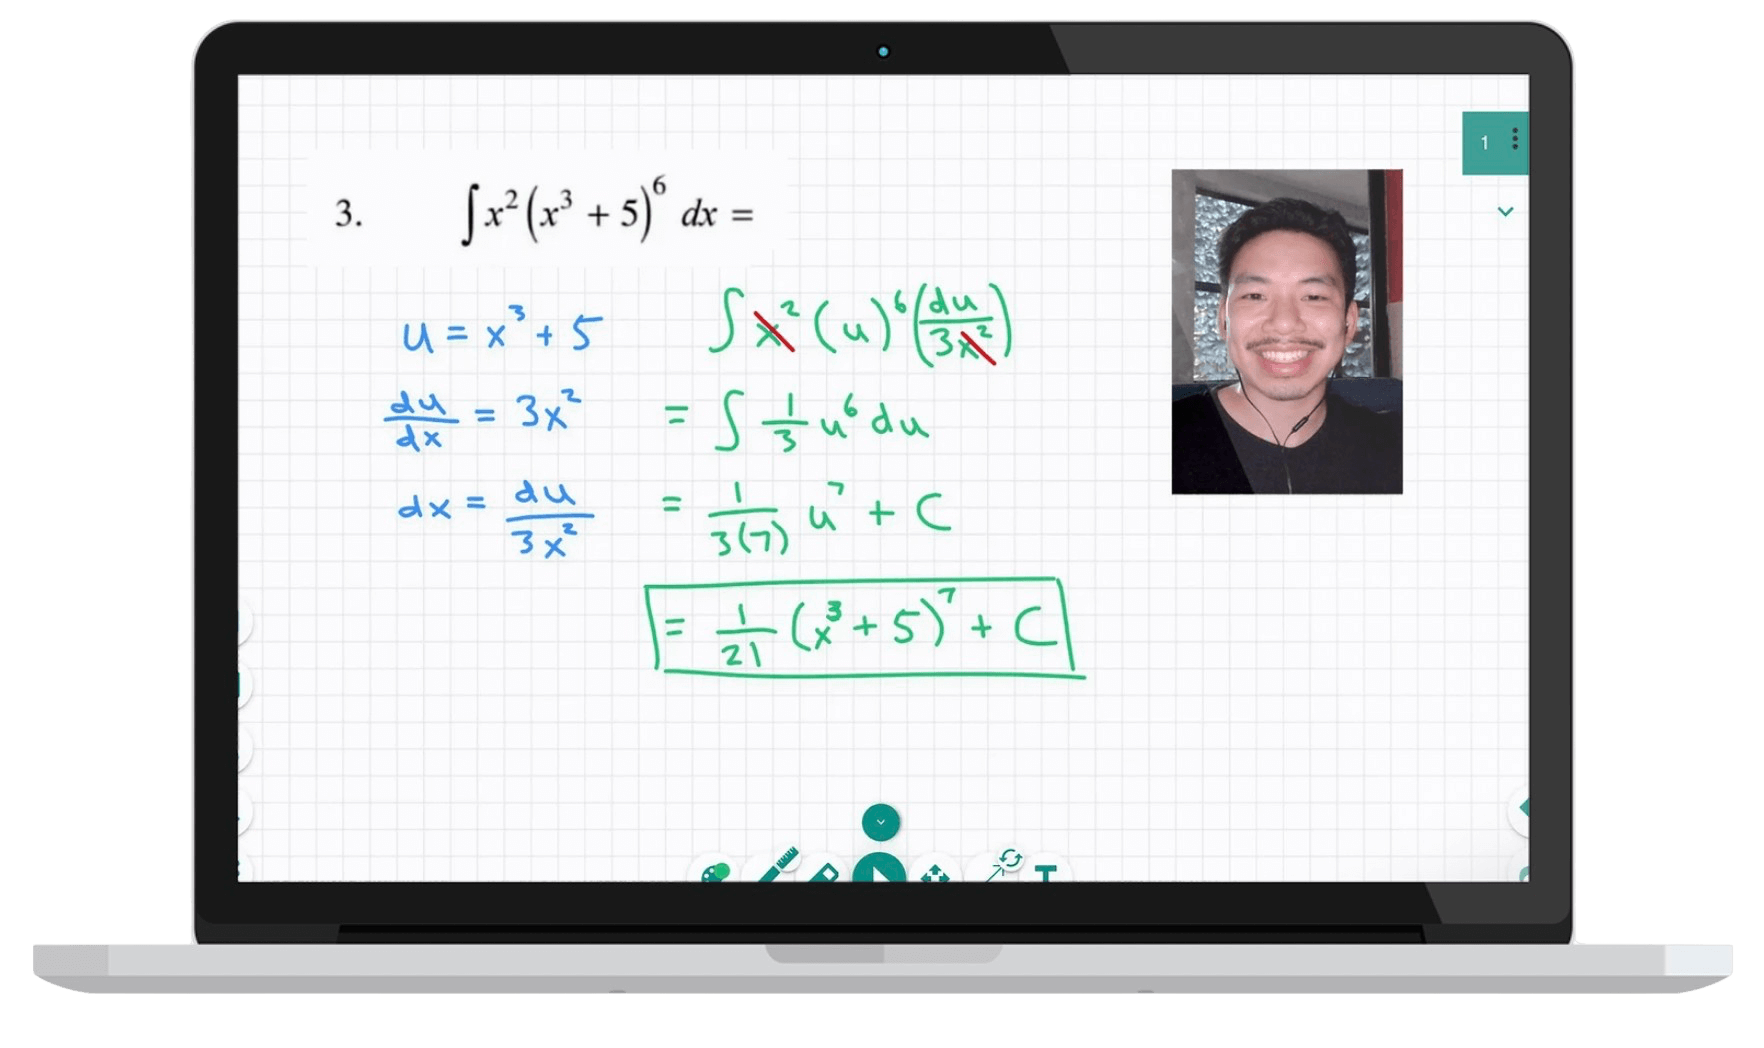 3. ∫ x² (x³ + 5)⁶ dx =
u = x³ + 5
du/dx = 3x²
dx = du/3x²
∫ x² (u)⁶ (du/3x²)
= ∫ 1/3 u⁶ du
= 1/3(7) u⁷ + C
= 1/21 (x³ + 5)⁷ + C
1
T